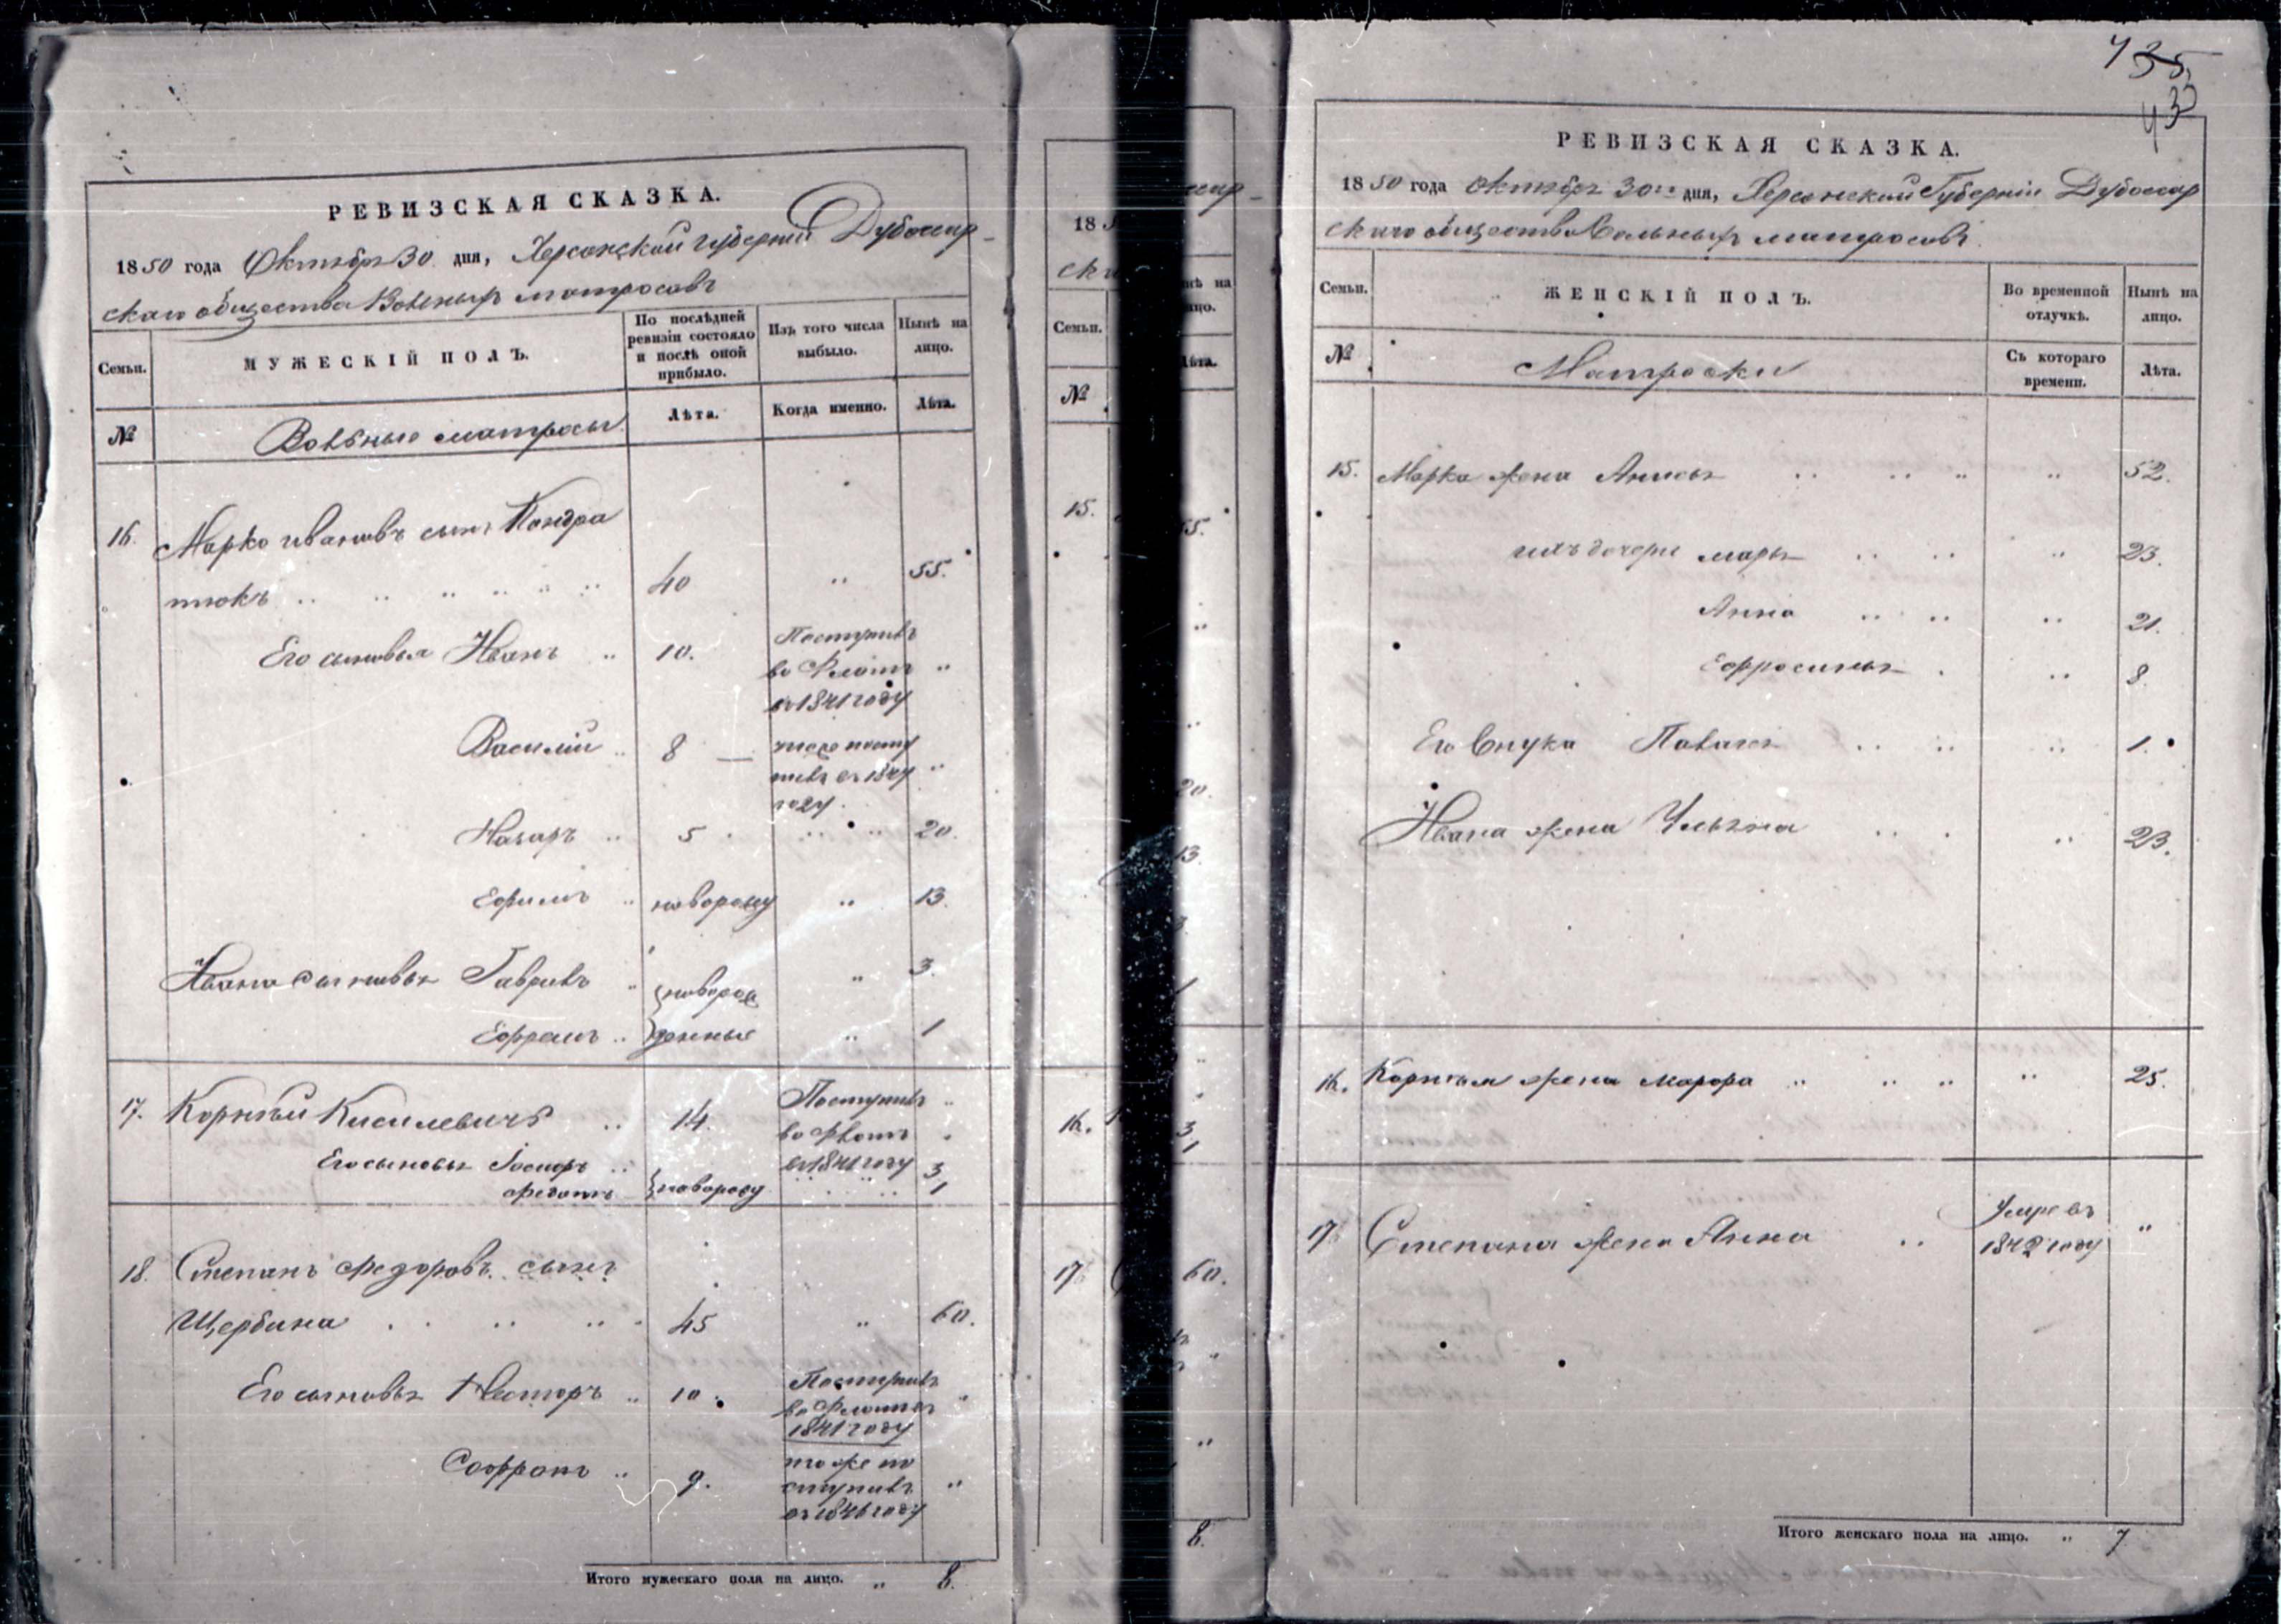 РЕВИЗСКАЯ СКАЗКА.
1850 года Октября 30 дня, Херсонской губернии Дубоссар-
скаго общества Вольныхъ матросовъ
Семьи.
МУЖЕСКІЙ ПОЛЪ.
По послѣдней ревизіи состояло и послѣ оной прибыло.
Изъ того числа выбыло.
Нынѣ на лицо.
№
Вольные матросы
Лѣта.
Когда именно.
Лѣта.
16. Марко Ивановъ сынъ Кондра
тюкъ 40 " 55.
Его сыновья Иванъ " 10. Поступилъ
во Флотъ "
въ 1841 году
Василій " 8 — тоже посту
пилъ въ 184 "
году.
Назаръ " 5 " 20.
Ефимъ " новорожд " 13.
Ивана сыновья Гаврилъ " новорож " 3.
Ефремъ " денные " 1
17. Корнѣй Кисилевичъ " 14. Поступилъ "
во Флотъ
въ 1841 году
Его сыновья Іосифъ " 3
Федотъ новорожд " 1
18. Степанъ Федоровъ сынъ
Щербина 45 " 60.
Его сыновья Несторъ " 10. Поступилъ
во Флотъ въ "
1841 году
Софронъ " 9. тоже по
ступилъ "
въ 1846 году
Итого мужескаго пола на лицо. " 8.
18
ска
Семьи.
№
15.
16.
17
сар-
нѣ на
цо.
Лѣта.
55.
"
"
20.
13.
3.
1
"
3
1
60.
"
"
8.
435.
430
РЕВИЗСКАЯ СКАЗКА.
1850 года Октября 30го дня, Херсонской Губерніи Дубоссар
скаго общества Вольныхъ матросовъ.
Семьи.
ЖЕНСКІЙ ПОЛЪ.
Во временной отлучкѣ.
Нынѣ на лицо.
№
Матроски
Съ котораго времени.
Лѣта.
15. Марка жена Анисья " 52.
ихъ дочери Марья " 23.
Анна " 21.
Ефросинья " 8.
Его внука Павлія " 1.
Ивана жена Ульяна " 23.
16. Корнѣя жена Марфа " 25.
17 Степана жена Анна Умре въ
1842 году "
Итого женскаго пола на лицо. " 7